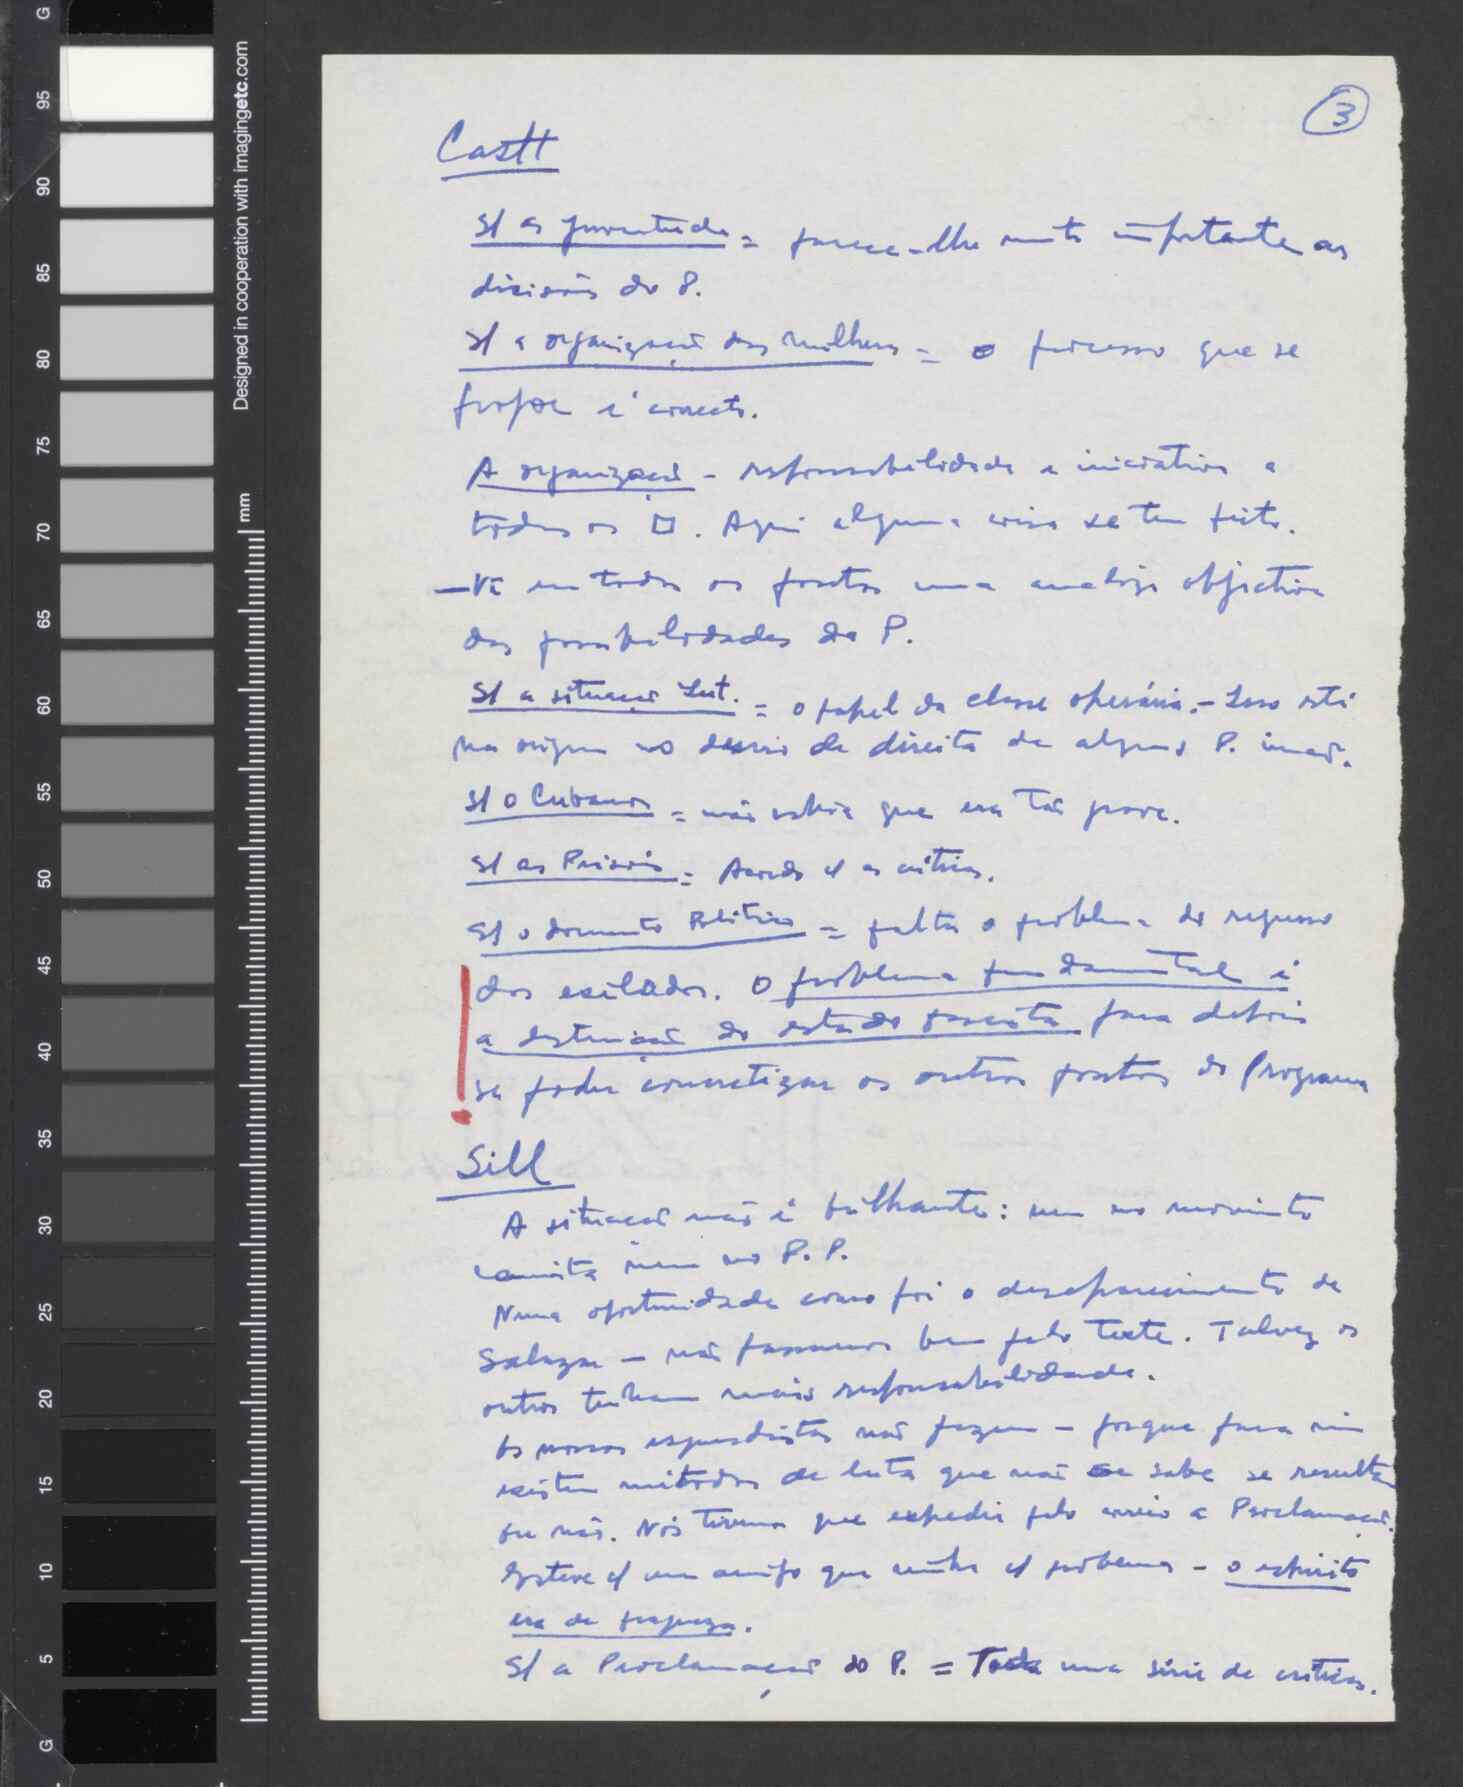 3
Castt
s/ as juventude = parece-lhe muito importante as
decisões do P.
s/ a organização das mulheres = o processo que se
propõe é correcto.
A organização - responsabilidade e iniciativa a
todos os □. Aqui alguma coisa se tem feito.
- Vê em todos os pontos uma análise objectiva
das possibilidades do P.
s/ a situação Int. = o papel da classe operária. - Isso está
na origem no desvio de direita de alguns P. irmãos.
s/ o Cubanos = não sabia que era tão grave.
s/ as Prisões = Acordo c/ as críticas.
s/ o documento Político = falta o problema do regresso
dos exilados. O problema fundamental é
a destruição do estado fascista para depois
se poder concretizar os outros pontos do Programa
Sill
A situação não é brilhante: nem no movimento
comunista nem no P. P.
Numa oportunidade como foi o desaparecimento de
Salazar - não passamos bem pelo teste. Talvez os
outros tenham mais responsabilidade.
Os nossos esquerdistas não fazem - porque para mim
existem métodos de luta que não se sabe se resultam
ou não. Nós tivemos que expedir pelo correio a Proclamação.
Esteve c/ um amigo que tinha c/ problemas - o espírito
era de fraqueza.
s/ a Proclamação do P. = Toda uma série de críticas.
G
95
90
85
80
75
70
65
60
55
50
45
40
35
30
25
20
15
10
5
G
Designed in cooperation with imagingetc.com
mm